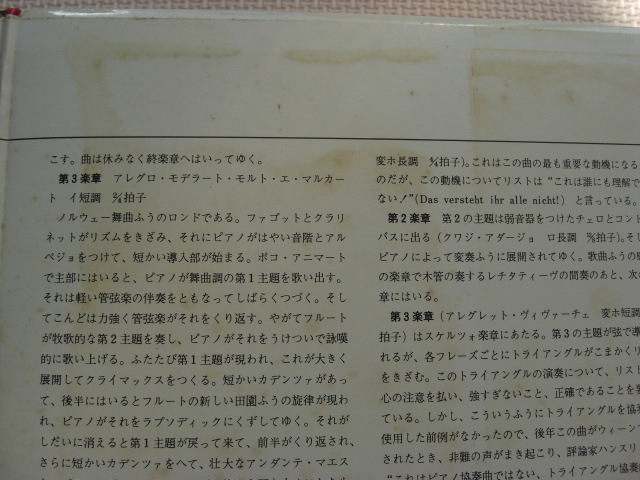 こす。曲は休みなく終楽章へはいってゆく。
第3楽章 アレグロ・モデラート・モルト・エ・マルカー
ト イ短調 2/4拍子
ノルウェー舞曲ふうのロンドである。ファゴットとクラリ
ネットがリズムをきざみ、それにピアノがはやい音階とアル
ペジョをつけて、短かい導入部が始まる。ポコ・アニマート
で主部にはいると、ピアノが舞曲調の第1主題を歌い出す。
それは軽い管弦楽の伴奏をともなってしばらくつづく。そし
てこんどは力強く管弦楽がそれをくり返す。やがてフルート
が牧歌的な第2主題を奏し、ピアノがそれをうけついで詠嘆
的に歌い上げる。ふたたび第1主題が現われ、これが大きく
展開してクライマックスをつくる。短かいカデンツァがあっ
て、後半にはいるとフルートの新しい田園ふうの旋律が現わ
れ、ピアノがそれをラプソディックにくずしてゆく。それが
しだいに消えると第1主題が戻って来て、前半がくり返され、
さらに短かいカデンツァをへて、壮大なアンダンテ・マエス
変ホ長調 4/4拍子)。これはこの曲の最も重要な動機になる
のだが、この動機についてリストは“これは誰にも理解で
ない!”(Das versteht ihr alle nicht!) と言っている。
第2楽章 第2の主題は弱音器をつけたチェロとコント
バスに出る(クワジ・アダージョ ロ長調 拍子)。そし
ピアノによって変奏ふうに展開されてゆく。歌曲ふうの
の楽章で木管の奏するレチタティーヴの間奏のあと、次の
章にはいる。
第3楽章(アレグレット・ヴィヴァーチェ 変ホ短調
拍子)はスケルツォ楽章にあたる。第3の主題が弦で導
れるが、各フレーズごとにトライアングルがこまかくリ
をきざむ。このトライアングルの演奏について、リスト
心の注意を払い、強すぎないこと、正確であることを要
ている。しかし、こういうふうにトライアングルを協奏
使用した前例がなかったので、後年この曲がウィーンで
されたとき、非難の声がまき起こり、評論家ハンスリ
“これはピアノ協奏曲ではない、トライアングル協奏